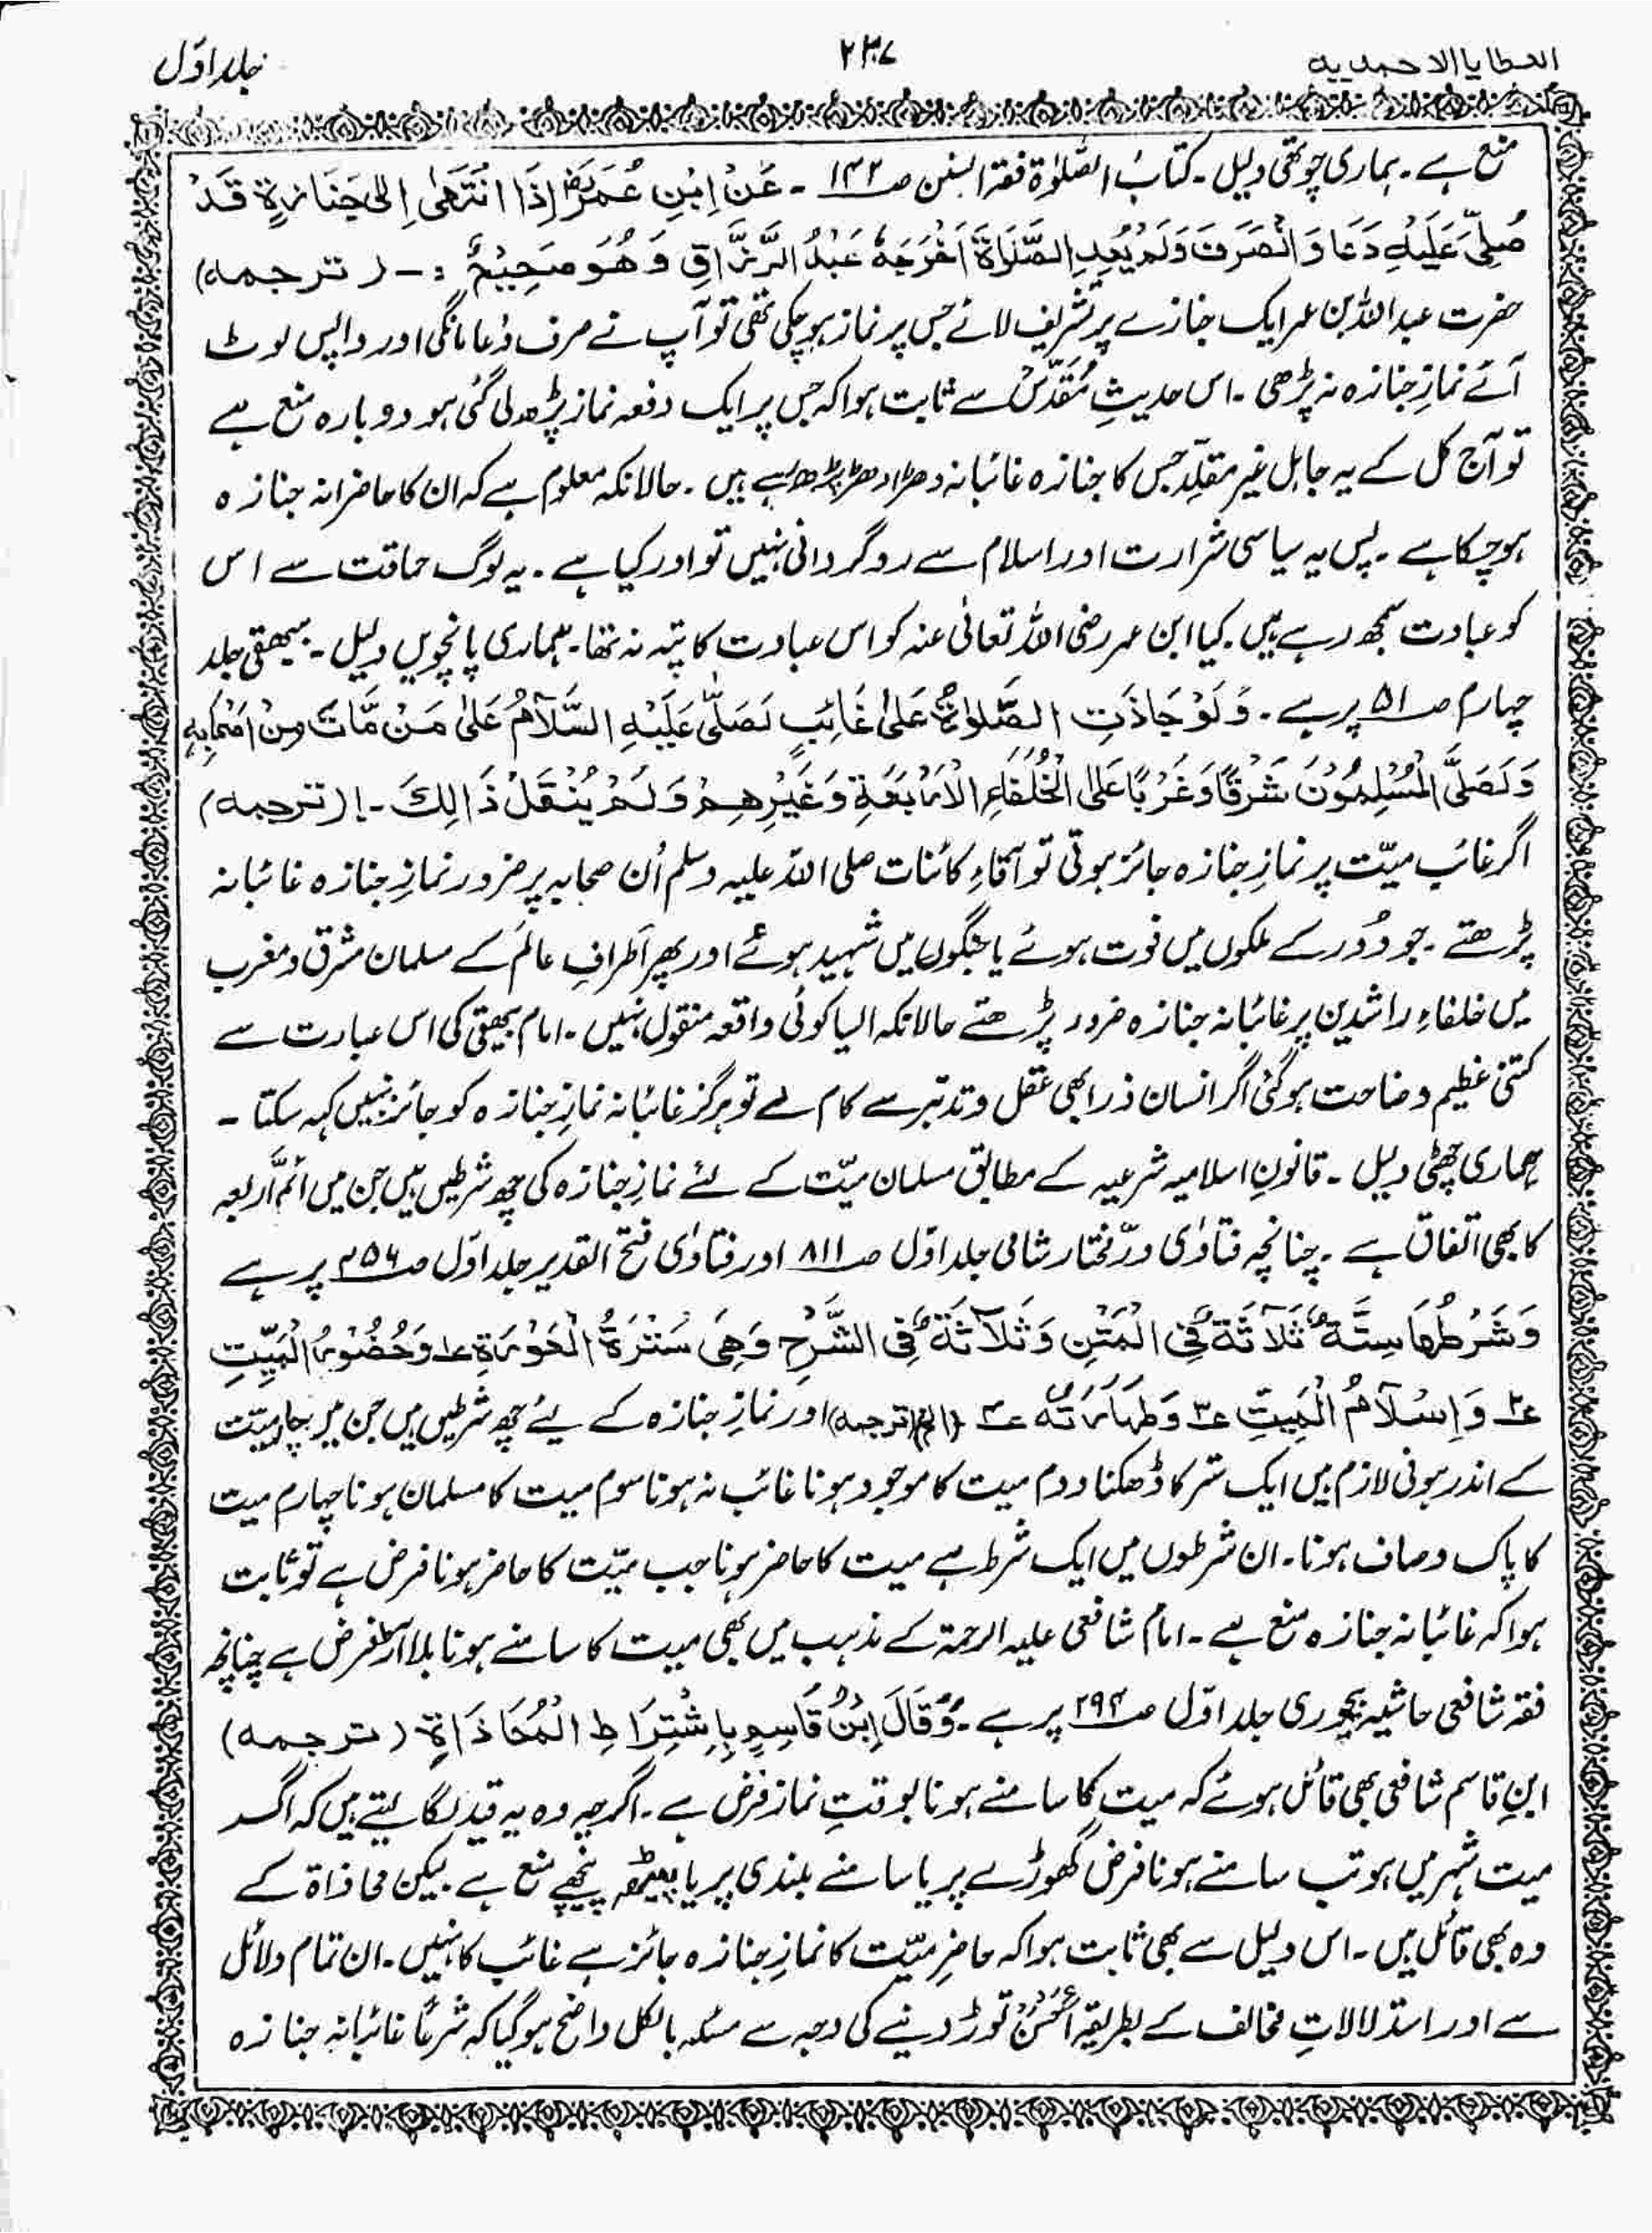 العطایا الاحمدیہ ۲۳۷ جلد اوّل
منع ہے۔ ہماری چوتھی دلیل۔ کتابُ الصّلوٰۃ فقہ السنن صـ۱۴۲ـ۔ عَنْ اِبْنِ عُمَرَؓ اِذَا انْتَهٰی اِلیٰ جَنَازَةٍ قَدْ
صُلِّیَ عَلَيْهِ دَعَا وَانْصَرَفَ وَلَمْ يُعِدِ الصَّلٰوةَ اَخْرَجَهٗ عَبْدُ الرَّزَّاقِ وَهُوَ صَحِيْحٌ :۔ (ترجمہ)
حضرت عبد اللہ بن عمر ایک جنازے پر تشریف لائے جس پر نماز ہو چکی تھی تو آپ نے صرف دُعا مانگی اور واپس لوٹ
آئے نمازِ جنازہ نہ پڑھی۔ اس حدیثِ مُقَدّس سے ثابت ہوا کہ جس پر ایک دفعہ نماز پڑھ لی گئی ہو دوبارہ منع ہے
تو آج کل کے یہ جاہل غیر مقلِّد جس کا جنازہ غائبانہ دھڑا دھڑ پڑھ رہے ہیں۔ حالانکہ معلوم ہے کہ ان کا حاضرانہ جنازہ
ہو چکا ہے۔ پس یہ سیاسی شرارت اور اسلام سے روگردانی نہیں تو اور کیا ہے۔ یہ لوگ حماقت سے اس
کو عبادت سمجھ رہے ہیں۔ کیا ابن عمر رضی اللہ تعالیٰ عنہ کو اس عبادت کا پتہ نہ تھا۔ ہماری پانچویں دلیل۔ بیھقی جلد
چہارم صـ۵۱ـ پر ہے۔ وَلَوْ جَاذَتِ الصَّلوٰةُ عَلیٰ غَائِبٍ لَصَلّٰی عَلَيْهِ السَّلَامُ عَلیٰ مَنْ مَّاتَ مِنْ اَصْحَابِهٖ
وَلَصَلَّی الْمُسْلِمُوْنَ شَرْقًا وَغَرْبًا عَلَی الْخُلَفَاءِ الْاَرْبَعَةِ وَغَيْرِهِمْ وَلَمْ يُنْقَلْ ذَالِكَ۔! (ترجمہ)
اگر غائب میّت پر نمازِ جنازہ جائز ہوتی تو آقاءِ کائنات صلی اللہ علیہ وسلم اُن صحابہ پر ضرور نمازِ جنازہ غائبانہ
پڑھتے۔ جو دُور کے ملکوں میں فوت ہوئے یا جنگوں میں شہید ہوئے اور پھر اَطرافِ عالَم کے مسلمان مشرق و مغرب
میں خلفاءِ راشدین پر غائبانہ جنازہ ضرور پڑھتے حالانکہ ایسا کوئی واقعہ منقول نہیں۔ امام بیھقی کی اس عبارت سے
کتنی عظیم وضاحت ہو گئی اگر انسان ذرا بھی عقل و تدبّر سے کام لے تو ہرگز غائبانہ نمازِ جنازہ کو جائز نہیں کہہ سکتا۔
ہماری چھٹی دلیل۔ قانونِ اسلامیہ شرعیہ کے مطابق مسلمان میّت کے لئے نمازِ جنازہ کی چھ شرطیں ہیں جن میں ائمّہ اربعہ
کا بھی اتفاق ہے۔ چنانچہ فتاوٰی درّ مختار شامی جلد اوّل صـ۸۱۱ـ اور فتاوٰی فتح القدیر جلد اوّل صـ۴۵۶ـ پر ہے
وَشَرْطُهَا سِتَّةٌ ثَلَاثَةٌ فِی الْمَتْنِ وَثَلَاثَةٌ فِی الشَّرْحِ وَهِیَ سَتْرَةُ الْعَوْرَةِ ؏۱ وَحُضُوْرُ الْمَيِّتِ
؏۲ وَاِسْلَامُ الْمَيِّتِ ؏۳ وَطَهَارَتُهٗ ؏۴ (الخ) (ترجمہ) اور نمازِ جنازہ کے لیئے چھ شرطیں ہیں جن میں چار میّت
کے اندر ہونی لازم ہیں ایک ستر کا ڈھکنا دوم میت کا موجود ہونا غائب نہ ہونا سوم میت کا مسلمان ہونا چہارم میت
کا پاک و صاف ہونا۔ ان شرطوں میں ایک شرط ہے میت کا حاضر ہونا جب میّت کا حاضر ہونا فرض ہے تو ثابت
ہوا کہ غائبانہ جنازہ منع ہے۔ امام شافعی علیہ الرحمۃ کے مذہب میں بھی میت کا سامنے ہونا بلا آڑ فرض ہے چنانچہ
فقہ شافعی حاشیہ بیجوری جلد اوّل صـ۲۹۴ـ پر ہے۔ وَقَالَ اِبْنُ قَاسِمٍ بِاِشْتِرَاطِ الْمُحَاذَاةِ (ترجمہ)
ابنِ قاسم شافعی بھی قائل ہوئے کہ میت کا سامنے ہونا بوقتِ نماز فرض ہے۔ اگرچہ وہ یہ قید لگا لیتے ہیں کہ اگر
میت شہر میں ہو تب سامنے ہونا فرض گھوڑے پر یا سامنے بلندی پر یا پیٹھ پیچھے منع ہے۔ لیکن محاذاۃ کے
وہ بھی قائل ہیں۔ اس دلیل سے بھی ثابت ہوا کہ حاضرِ میّت کا نمازِ جنازہ جائز ہے غائب کا نہیں۔ ان تمام دلائل
سے اور استدلالاتِ مخالف کے بطریقہ اَحْسَنْ توڑ دینے کی وجہ سے مسئلہ بالکل واضح ہو گیا کہ شرعًا غائبانہ جنازہ